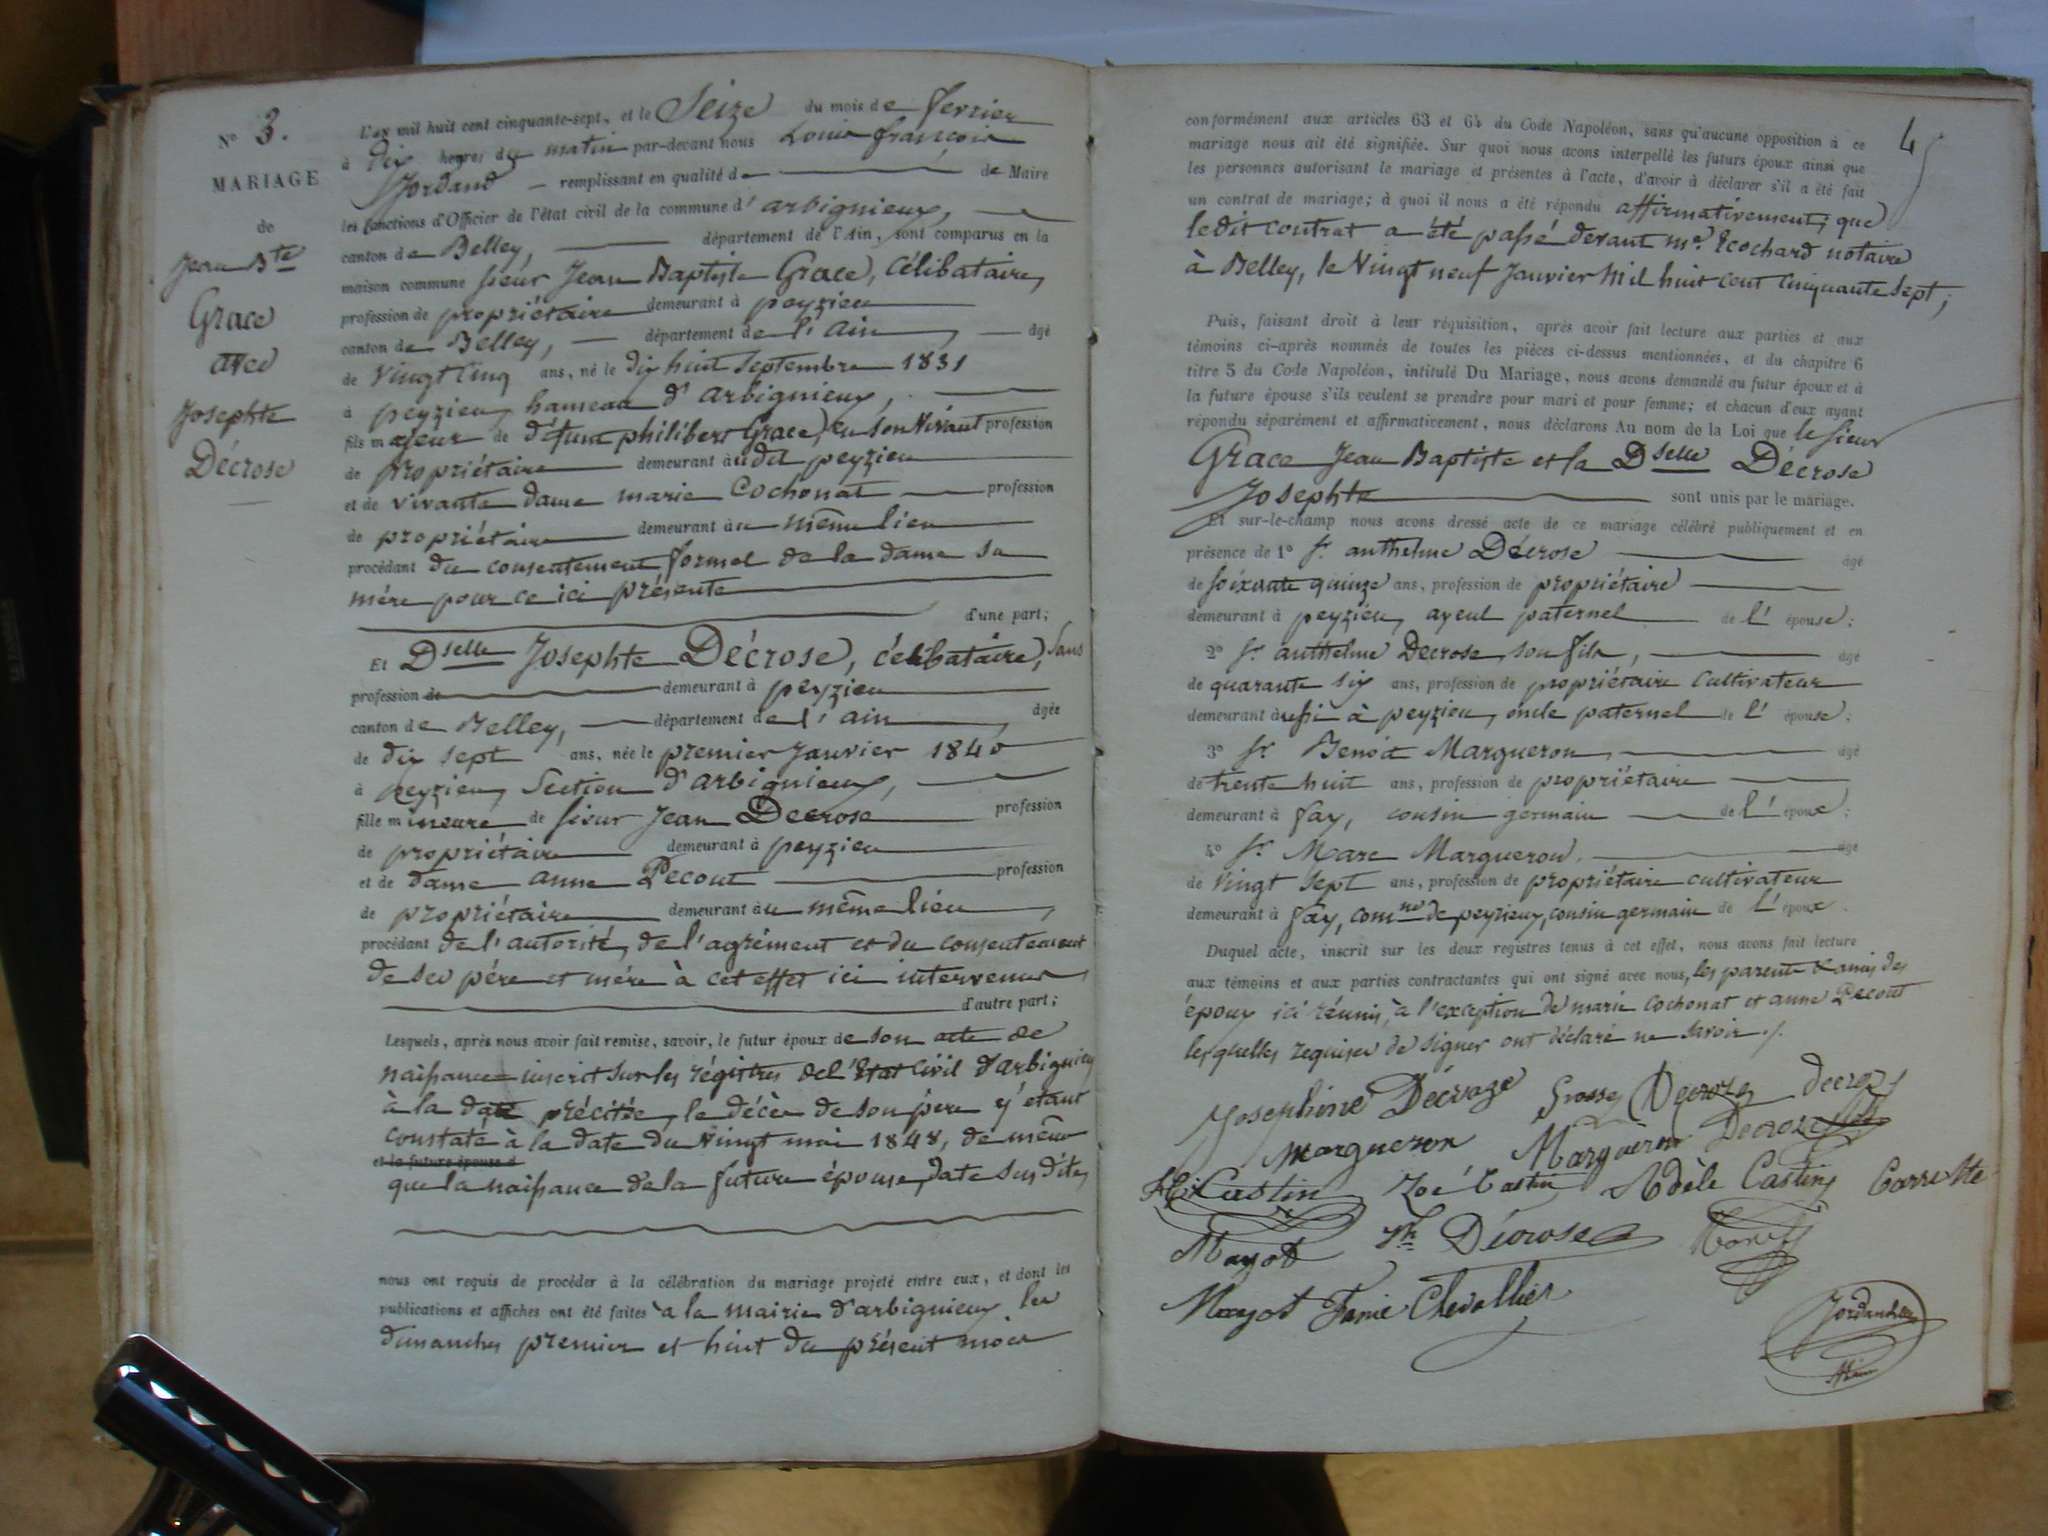 N° 3.
MARIAGE
de
Jean Bte
Grace
avec
Josephte
Décrose
L'an mil huit cent cinquante-sept, et le Seize du mois de fevrier
à dix heures du matin par-devant nous Louis françois
Jordand remplissant en qualité de de Maire
les fonctions d'Officier de l'état civil de la commune d'arbignieux,
canton de Belley, département de l'Ain, sont comparus en la
maison commune sieur Jean Baptiste Grace, Célibataire,
profession de propriétaire demeurant à peyzieu
canton de Belley, département de l'ain, âgé
de vingt cinq ans, né le dix huit septembre 1831
à peyzieu, hameau d'arbignieux,
fils majeur de défunt philibert Grace, en son vivant profession
de propriétaire demeurant audit peyzieu
et de vivante dame marie Cochonat profession
de propriétaire demeurant au même lieu
procédant du consentement formel de la dame sa
mère pour ce ici présente
d'une part;
Et Dselle Josephte Décrose, célibataire, sans
profession de demeurant à peyzieu
canton de Belley, département de l'ain, âgée
de dix sept ans, née le premier janvier 1840
à peyzieu, Section d'arbignieux,
fille mineure de sieur Jean Decrose profession
de propriétaire demeurant à peyzieu
et de dame anne Pecout profession
de propriétaire demeurant au même lieu,
procédant de l'autorité, de l'agrément et du consentement
de ses père et mère à cet effet ici intervenus
d'autre part;
Lesquels, après nous avoir fait remise, savoir, le futur époux de son acte de
naissance inscrit sur les régistres de l'Etat Civil d'arbignieu
à la date précitée, le décès de son père y étant
constaté à la date du vingt mai 1848, de même
et la future épouse d
que la naissance de la future épouse, date sus dite,
nous ont requis de procéder à la célébration du mariage projeté entre eux, et dont les
publications et affiches ont été faites à la mairie d'arbignieux les
dimanches premier et huit du présent mois
4
conformément aux articles 63 et 64 du Code Napoléon, sans qu'aucune opposition à ce
mariage nous ait été signifiée. Sur quoi nous avons interpellé les futurs époux ainsi que
les personnes autorisant le mariage et présentes à l'acte, d'avoir à déclarer s'il a été fait
un contrat de mariage; à quoi il nous a été répondu affirmativement, que
le dit contrat a été passé devant me. Ecochard notaire
à Belley, le vingt neuf janvier mil huit cent cinquante sept;
Puis, faisant droit à leur réquisition, après avoir fait lecture aux parties et aux
témoins ci-après nommés de toutes les pièces ci-dessus mentionnées, et du chapitre 6
titre 5 du Code Napoléon, intitulé Du Mariage, nous avons demandé au futur époux et à
la future épouse s'ils veulent se prendre pour mari et pour femme; et chacun d'eux ayant
répondu séparément et affirmativement, nous déclarons Au nom de la Loi que le sieur
Grace Jean Baptiste et la Dselle Décrose
Josephte sont unis par le mariage.
Et sur-le-champ nous avons dressé acte de ce mariage célébré publiquement et en
présence de 1° sr. anthelme Décrose âgé
de soixante quinze ans, profession de propriétaire
demeurant à peyzieu, ayeul paternel de l'épouse;
2° sr. anthelme Decrose, son fils, âgé
de quarante six ans, profession de propriétaire cultivateur
demeurant aussi à peyzieu, oncle paternel de l'épouse;
3° sr. Benoit Margueron, âgé
de trente huit ans, profession de propriétaire
demeurant à fay, cousin germain de l'époux;
4° sr. Marc Margueron, âgé
de vingt sept ans, profession de propriétaire cultivateur
demeurant à fay, comne de peyrieux, cousin germain de l'époux.
Duquel acte, inscrit sur les deux registres tenus à cet effet, nous avons fait lecture
aux témoins et aux parties contractantes qui ont signé avec nous, les parents & amis des
époux ici réunis, à l'exception de marie Cochonat et anne Pecout
lesquelles requises de signer ont déclaré ne savoir ./.
Josephine Décroze Decroze Decroz
Margueron Margueron Decroze
Castin Zoé Castin Adèle Castin
Mayot Décrose
Mayot Fanie Chevallier
Jordand